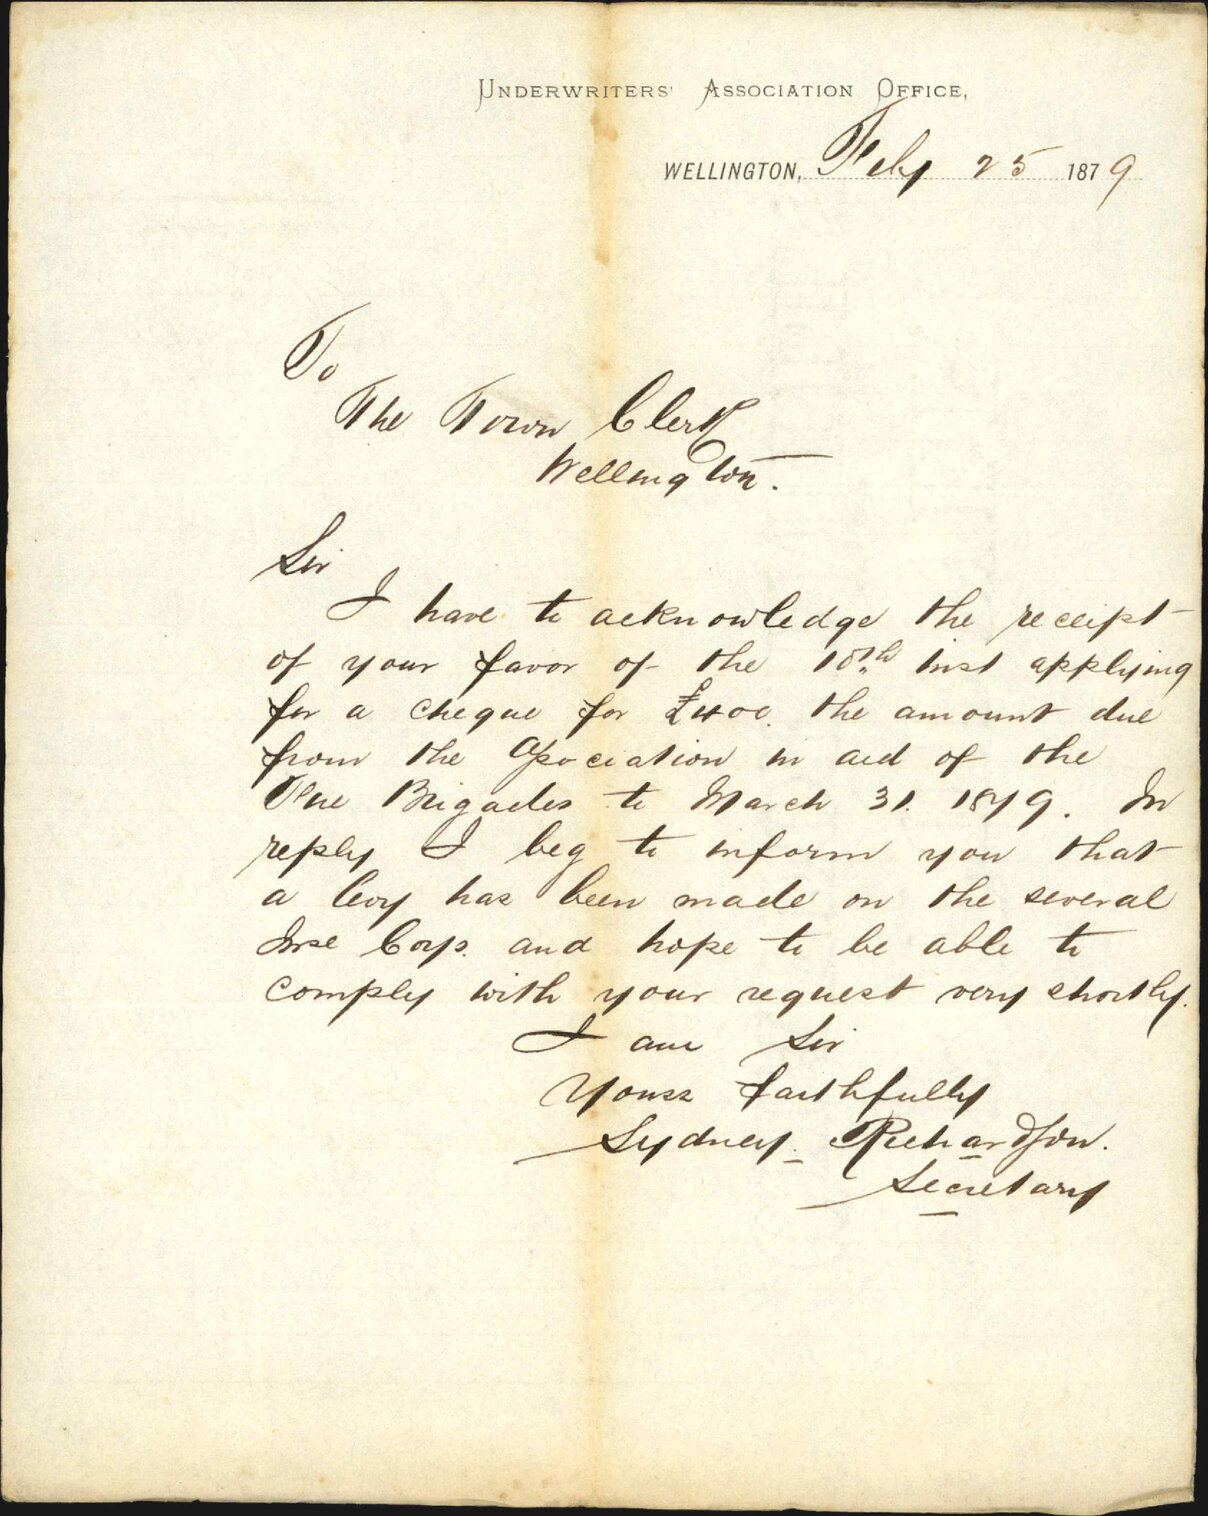 UNDERWRITERS' ASSOCIATION OFFICE,
WELLINGTON, Feby 25 1879
To
The Town Clerk
Wellington.
Sir
I have to acknowledge the receipt
of your favor of the 18th inst applying
for a cheque for £400. the amount due
from the Association in aid of the
Fire Brigades to March 31. 1879. In
reply I beg to inform you that
a levy has been made on the several
Inse Coys. and hope to be able to
comply with your request very shortly.
I am Sir
Yours faithfully
Sydney Richardson.
Secretary